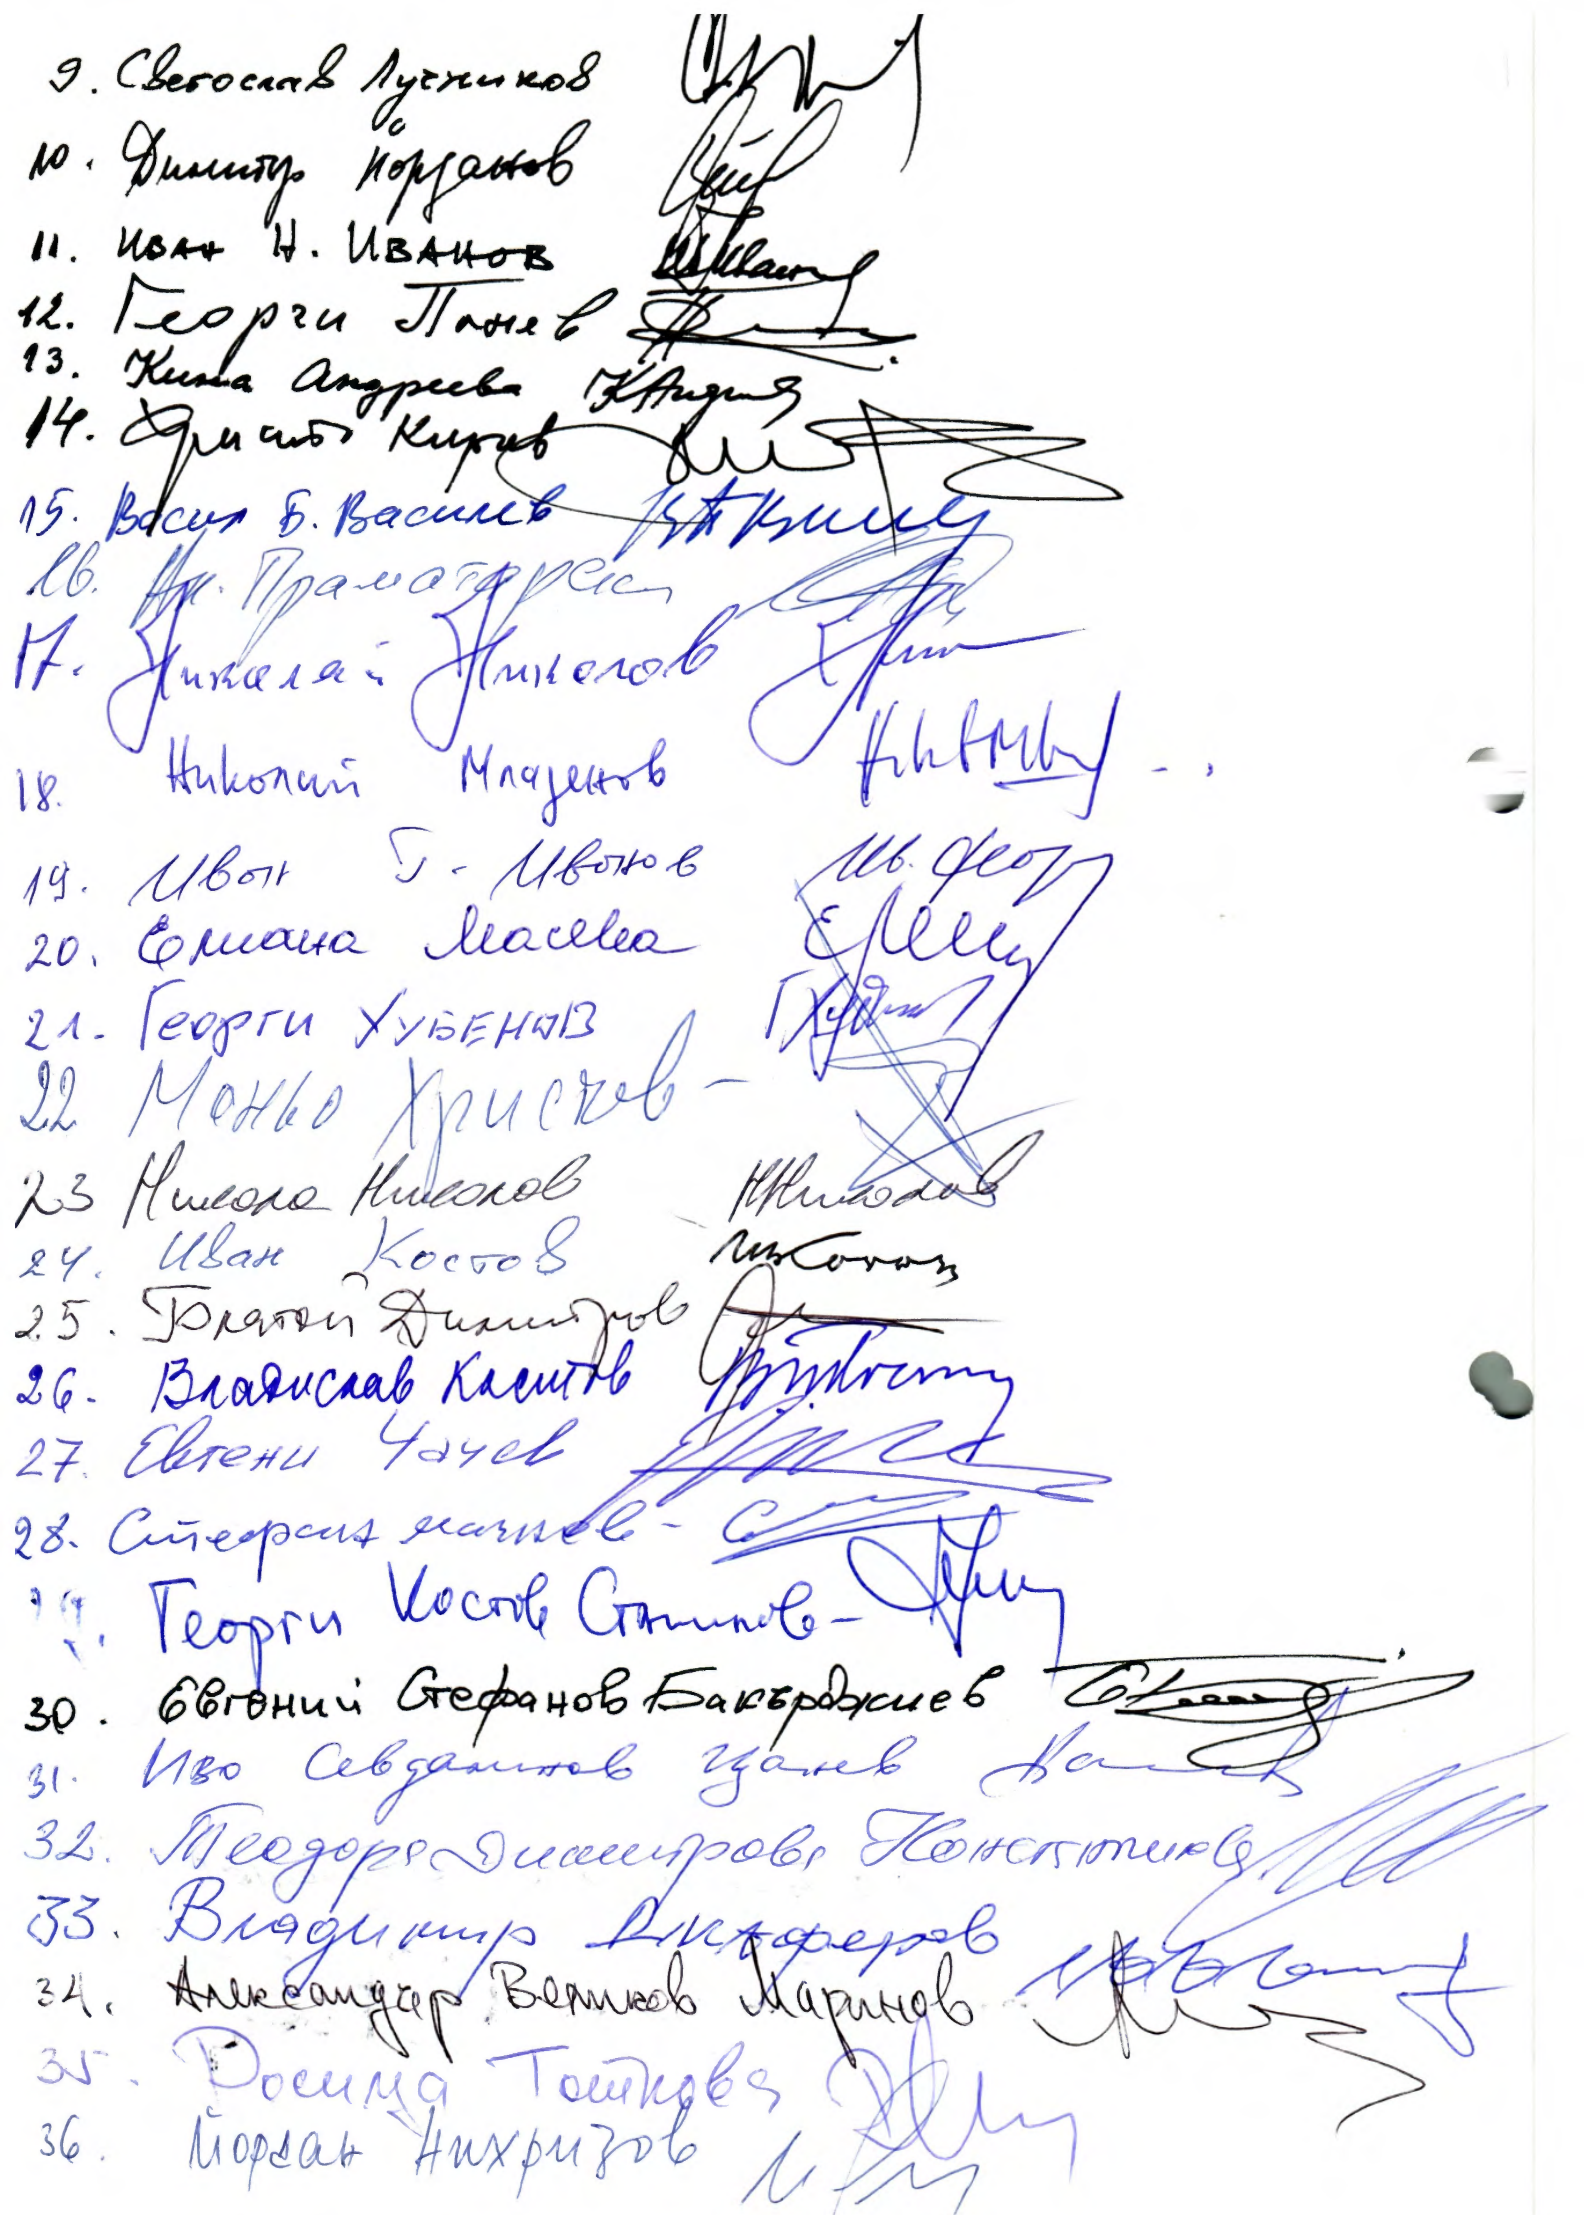 9. Светослав Лучников
10. Димитр Йорданов
11. Иван Н. Иванов
12. Георги Панев
13. Кина Андреева
14. Христо Киров
15. Васил Б. Василев
16. Ан. Праматарски
17. Николай Николов
18. Николай Младенов
19. Иван Г. Иванов
20. Елиана Масева
21. Георги Хубенов
22 Маньо Христов -
23 Никола Николов
24. Иван Костов
25. Благой Димитров
26. Владислав Костов
27. Евгени Чачев
28. Стефан -
Георги Костов -
30. Евгений Стефанов Бакърджиев
31. Иво Севдалинов Цанев
32. Теодора Димитрова Константинова
33. Владимир
34. Александър Великов Маринов
35. Росица Тоткова
36. Йордан Нихризов